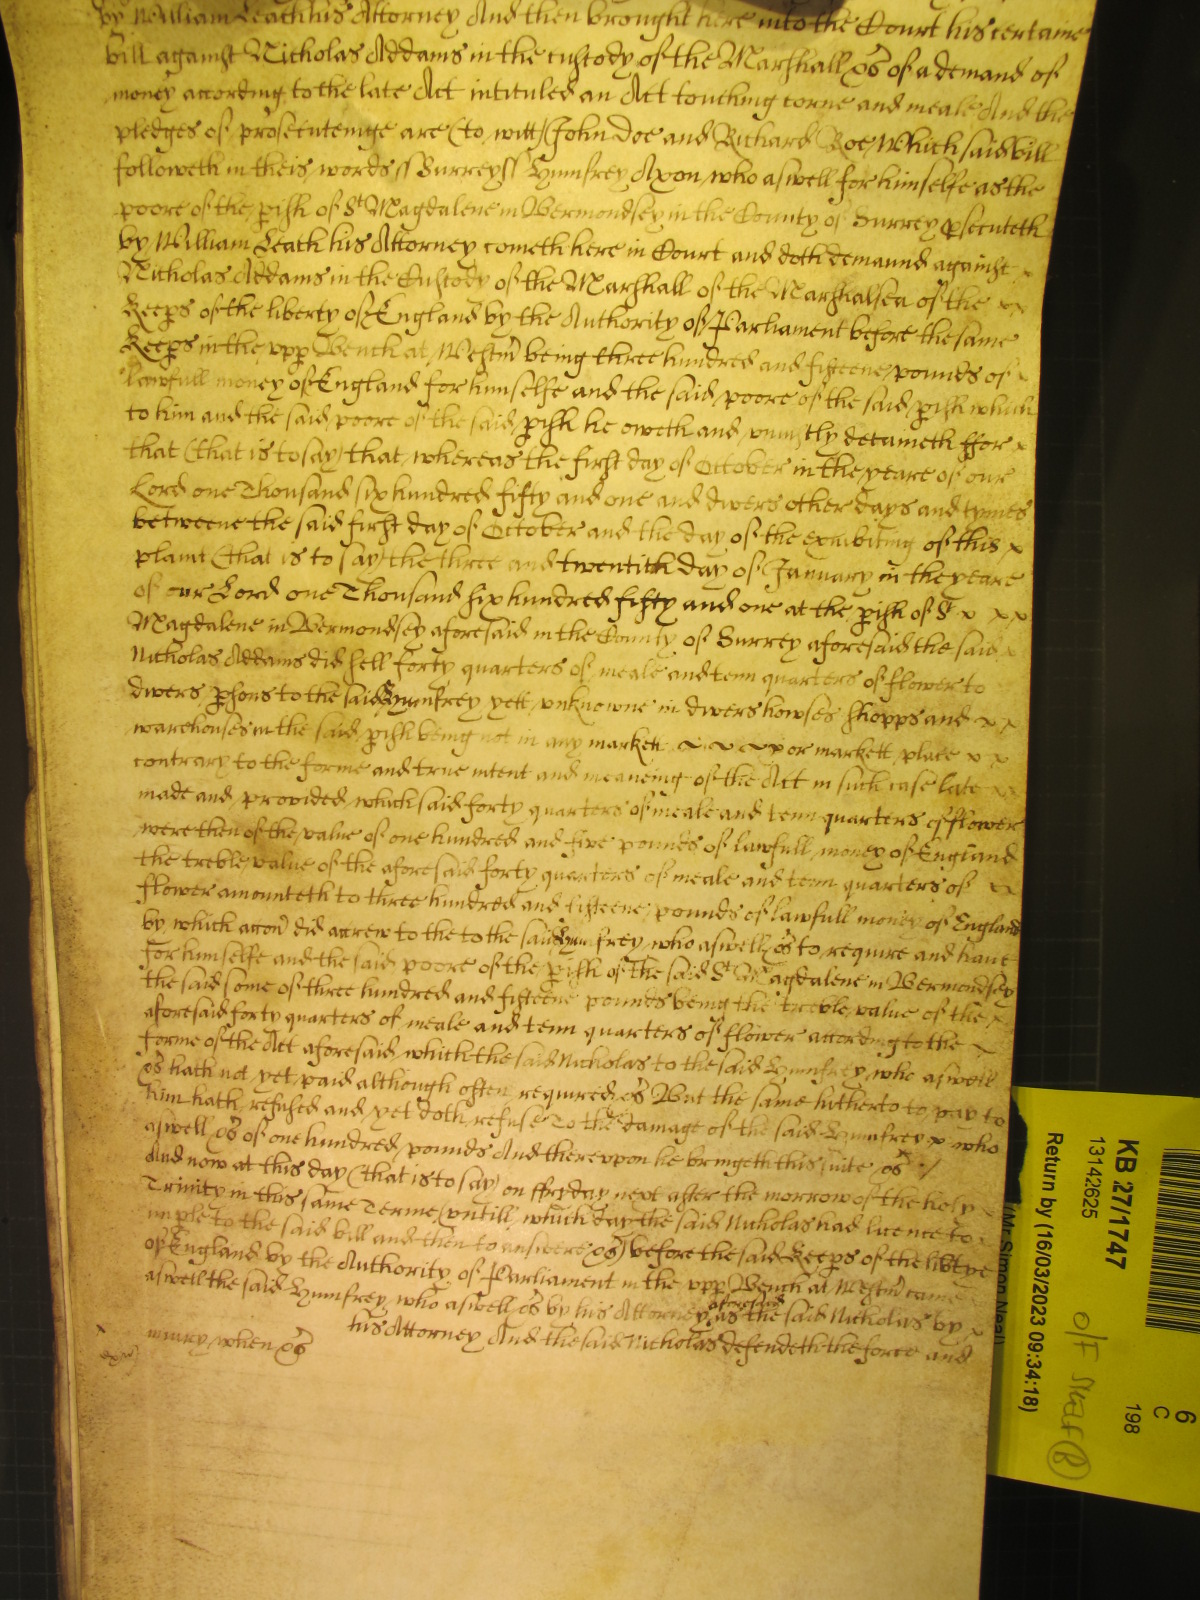 by William Leath his Attorney And then brought here into the Court his certaine
bill against Nicholas Addams in the custody of the Marshall &c of a demand of
money according to the late Act intituled an Act touching corne and meale And the
pledges of prosecuteinge are (to witt) John Doe and Richard Roe Which said bill
followeth in theis words ss Surrey ss Humfrey Axon who aswell for himselfe as the
poore of the pish of St Magdalene in Bermondsey in the County of Surrey psecuteth
by William Leath his Attorney cometh here in Court and doth demaund against
Nicholas Addams in the Custody of the Marshall of the Marshalsea of the
Keeps of the liberty of England by the Authority of Parliament before the same
Keeps in the upp Bench at Westm being three hundred and fifteene pounds of
lawfull money of England for himselfe and the said poore of the said pish which
to him and the said poore of the said pish he oweth and uniustly detaineth ffor
that (that is to say) that whereas the first day of October in the yeare of our
Lord one Thousand six hundred fifty and one and divers other days and tymes
betweene the said first day of October and the day of the exhibiting of this
plaint (that is to say) the three and twentith day of January in the yeare
of our Lord one Thousand six hundred fifty and one at the pish of St
Magdalene in Bermondsey aforesaid in the County of Surrey aforesaid the said
Nicholas Addams did sell forty quarters of meale and tenn quarters of flower to
divers psons to the said Humfrey yett unknowne in divers howses shopps and
warehouses in the said pish being not in any markett or markett place
contrary to the forme and true intent and meaneing of the Act in such case late
made and provided which said forty quarters of meale and tenn quarters of flower
were then of the value of one hundred and five pounds of lawfull money of England
the treble value of the aforesaid forty quarters of meale and tenn quarters of
flower amounteth to three hundred and fifteene pounds of lawfull money of England
by which accon did accrew to the to the said Humfrey who aswell &c to require and have
for himselfe and the said poore of the pish of the said St Magdalene in Bermondsey
the said some of three hundred and fifteene pounds being the treble value of the
aforesaid forty quarters of meale and tenn quarters of flower according to the
forme of the Act aforesaid which the said Nicholas to the said Humfrey who aswell
&c hath not yet paid although often required &c But the same hitherto to pay to
him hath refused and yet doth refuse To the damage of the said Humfrey who
aswell &c of one hundred pounds And thereupon he bringeth this suite &c
And now at this day (that is to say) on ffryday next after the morrow of the holy
Trinity in this same Terme (untill which day the said Nicholas had licence to
imple to the said bill and then to answere &c) before the said Keeps of the libtye
of England by the Authority of Parliament in the upp Bench at Westm came
aswell the said Humfrey who aswell &c by his Attorney aforesaid as the said Nicholas by
his Attorney And the said Nicholas defendeth the force and
iniury when &c
KB 27/1747
13142625
Return by (16/03/2023 09:34:18)
(Mr Simon Neal)
O/F Shelf R
198
C
6